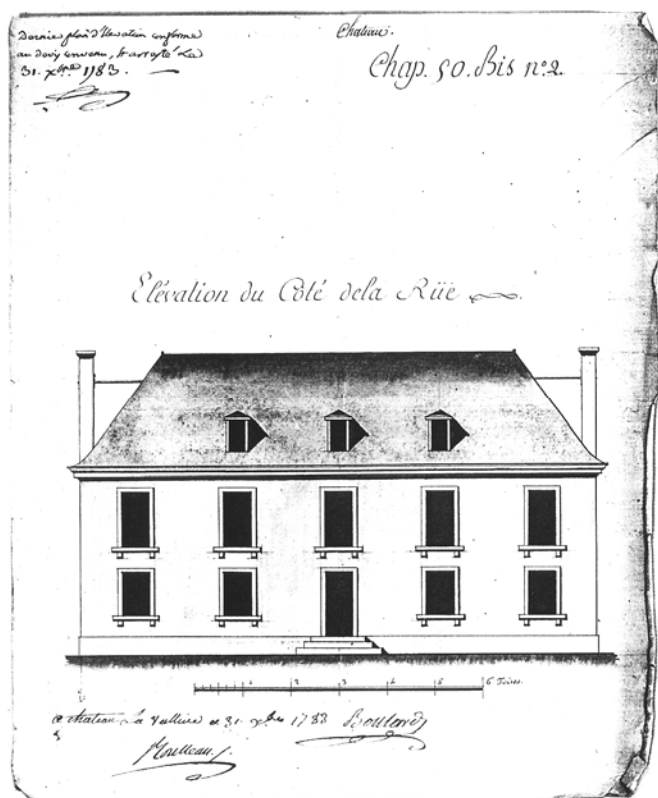 Dernier plan d'Elevation conforme
au devis convenu, & arresté Le
31. xbre 1783.
Chateau.
Chap. 50. Bis n.º 2.
Elévation du Côté dela Rüe
1 2 3 4 5 6 Toises.
a chateau La Valliere ce 31. xbre 1783